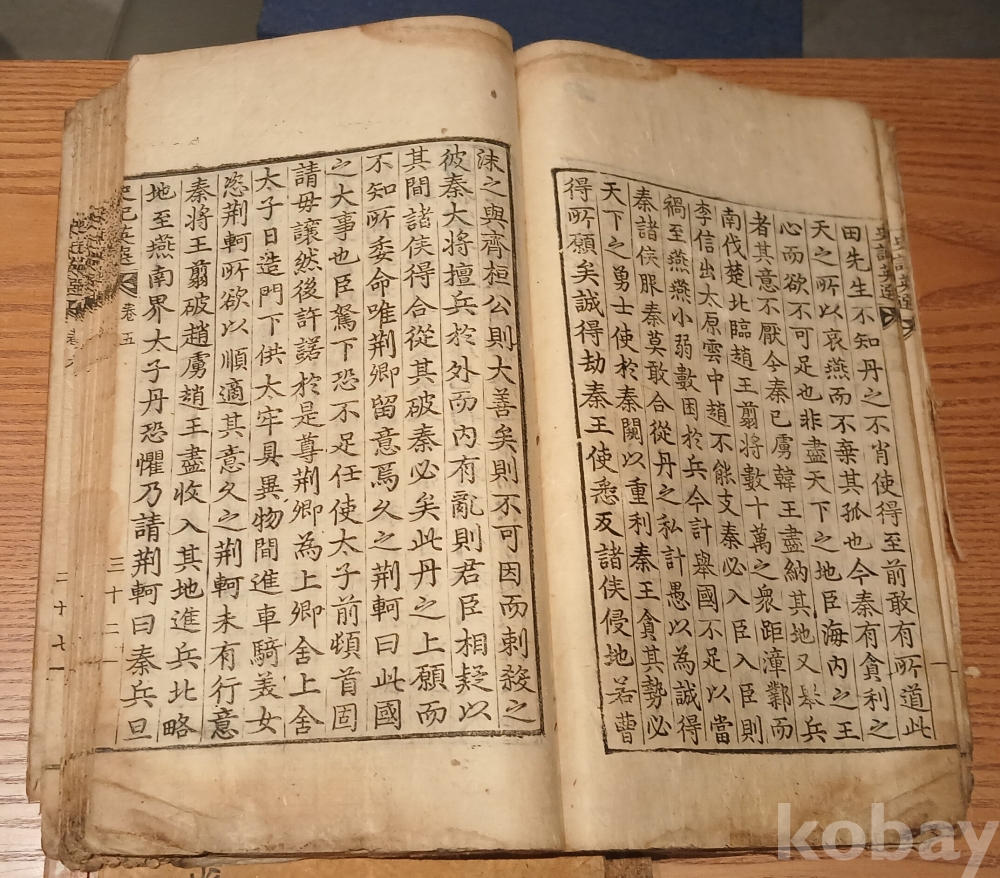 史記英選
田先生不知丹之不肖使得至前敢有所道此
天之所以哀燕而不棄其孤也今秦有貪利之
心而欲不可足也非盡天下之地臣海內之王
者其意不厭今秦已虜韓王盡納其地又舉兵
南伐楚北臨趙王翦將數十萬之衆距漳鄴而
李信出太原雲中趙不能支秦必入臣入臣則
禍至燕燕小弱數困於兵今計舉國不足以當
秦諸侯服秦莫敢合從丹之私計愚以為誠得
天下之勇士使於秦闚以重利秦王貪其勢必
得所願矣誠得劫秦王使悉反諸侯侵地若曹
沫之與齊桓公則大善矣則不可因而刺殺之
彼秦大將擅兵於外而內有亂則君臣相疑以
其間諸侯得合從其破秦必矣此丹之上願而
不知所委命唯荊卿留意焉久之荊軻曰此國
之大事也臣駑下恐不足任使太子前頓首固
請毋讓然後許諾於是尊荊卿為上卿舍上舍
太子日造門下供太牢具異物間進車騎美女
恣荊軻所欲以順適其意久之荊軻未有行意
秦將王翦破趙虜趙王盡收入其地進兵北略
地至燕南界太子丹恐懼乃請荊軻曰秦兵旦
史記英選 卷五 三十二
二十七
kobay